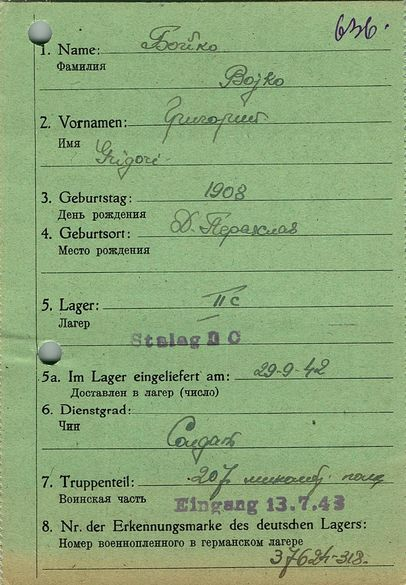 636.
1. Name: Бойко
Фамилия
Bojko
2. Vornamen: Григорий
Имя
Grigori
3. Geburtstag: 1908
День рождения
4. Geburtsort: Д.
Место рождения
5. Lager: IIc
Лагер
Stalag II C
5a. Im Lager eingeliefert am: 29-9-42
Доставлен в лагер (число)
6. Dienstgrad:
Чин
Солдат
7. Truppenteil: 207 миномет. полк
Воинская часть Eingang 13.7.43
8. Nr. der Erkennungsmarke des deutschen Lagers:
Номер военнопленного в германском лагере